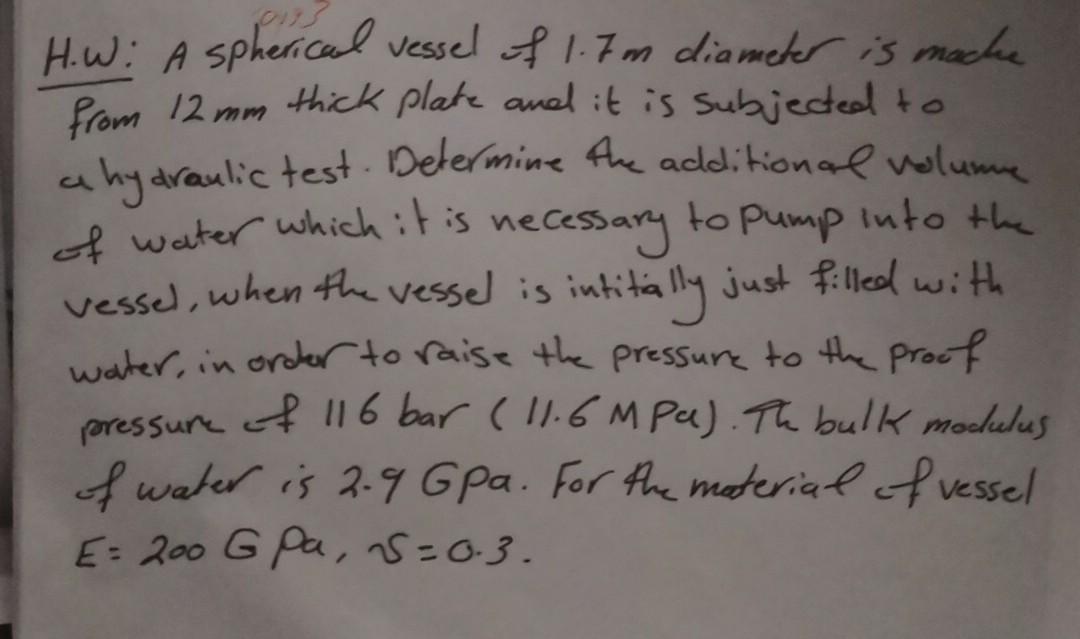 H.W: A spherical vessel of 1.7m diameter is made
from 12 mm thick plate and it is subjected to
a hydraulic test. Determine the additional volume
of water which it is necessary to pump into the
vessel, when the vessel is intitially just filled with
water, in order to raise the pressure to the proof
pressure of 116 bar (11.6 MPa). Th bulk modulus
of water is 2.9 GPa. For the material of vessel
E= 200 GPa, ν=0.3.